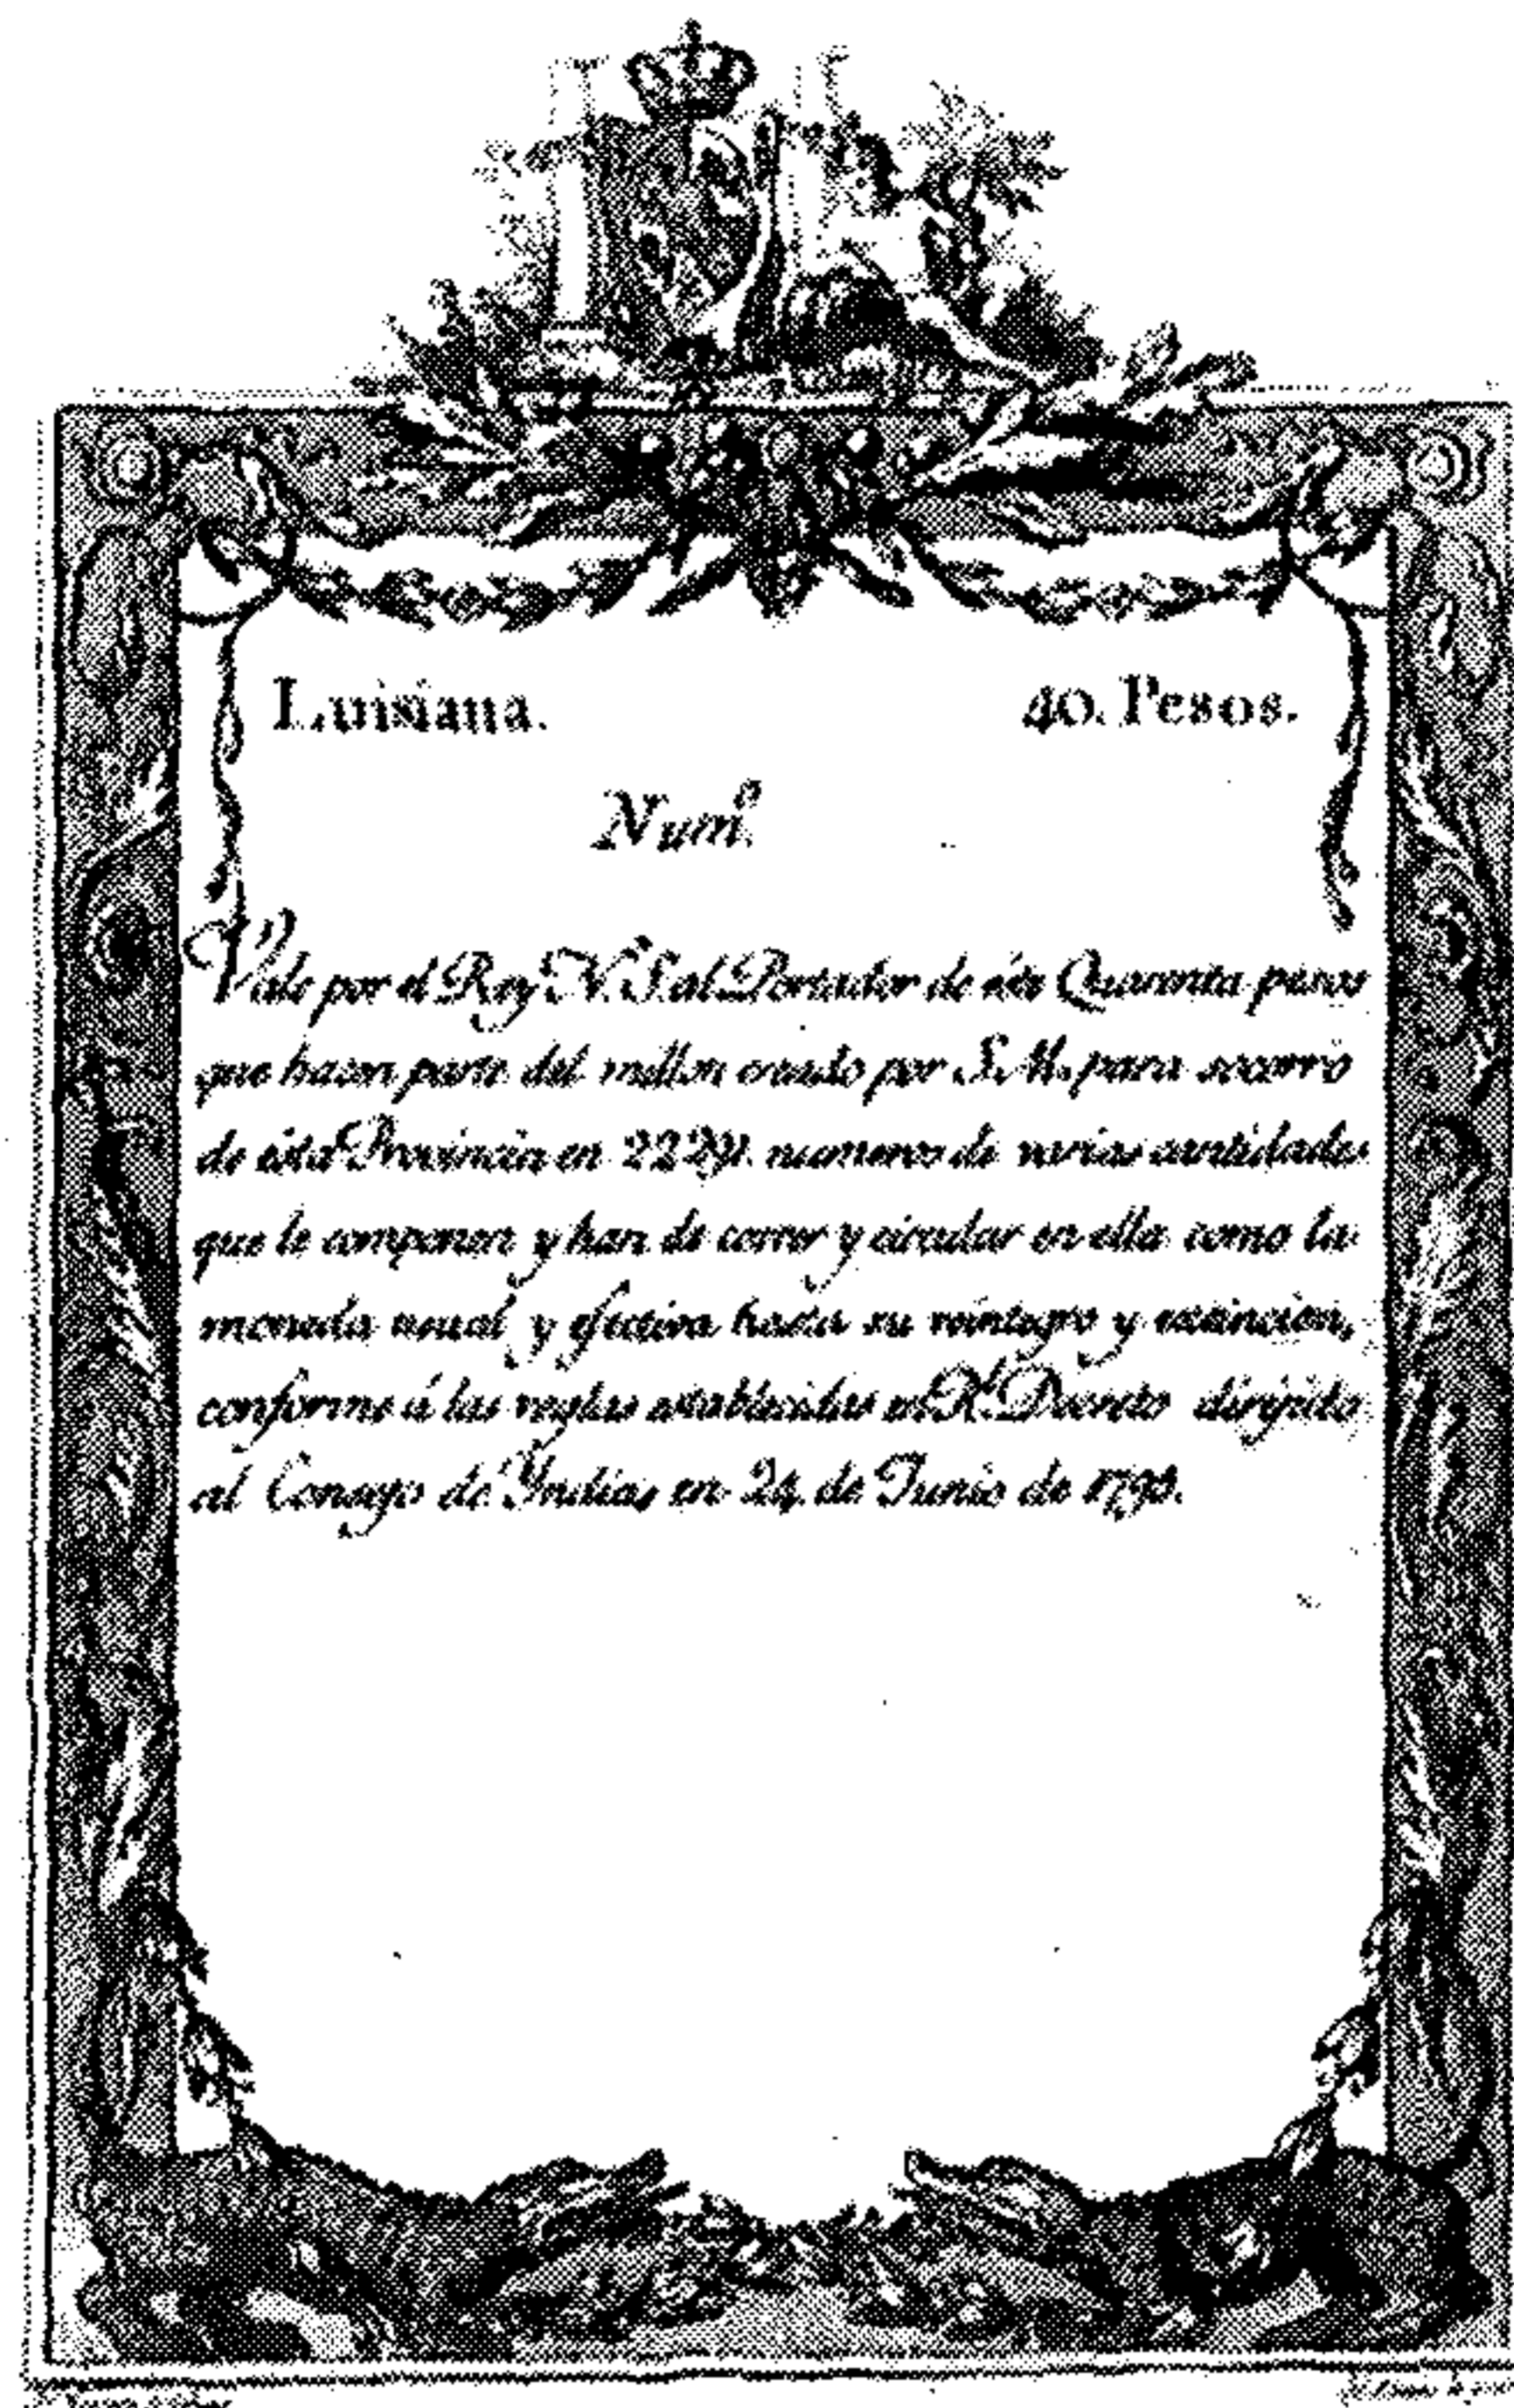 Luisiana. 40. Pesos.
Num.º
Vale por el Rey N. S. al Portador de éste Quarenta pesos
que hacen parte del millon creado por S. M. para socorro
de ésta Provincia en numeros de varias cantidades
que le componen y han de correr y circular en ella como la
moneda usual y efectiva hasta su reintegro y extincion,
conforme á las reglas establecidas en R.l Decreto dirigido
al Consejo de Yndias en 24. de Junio de